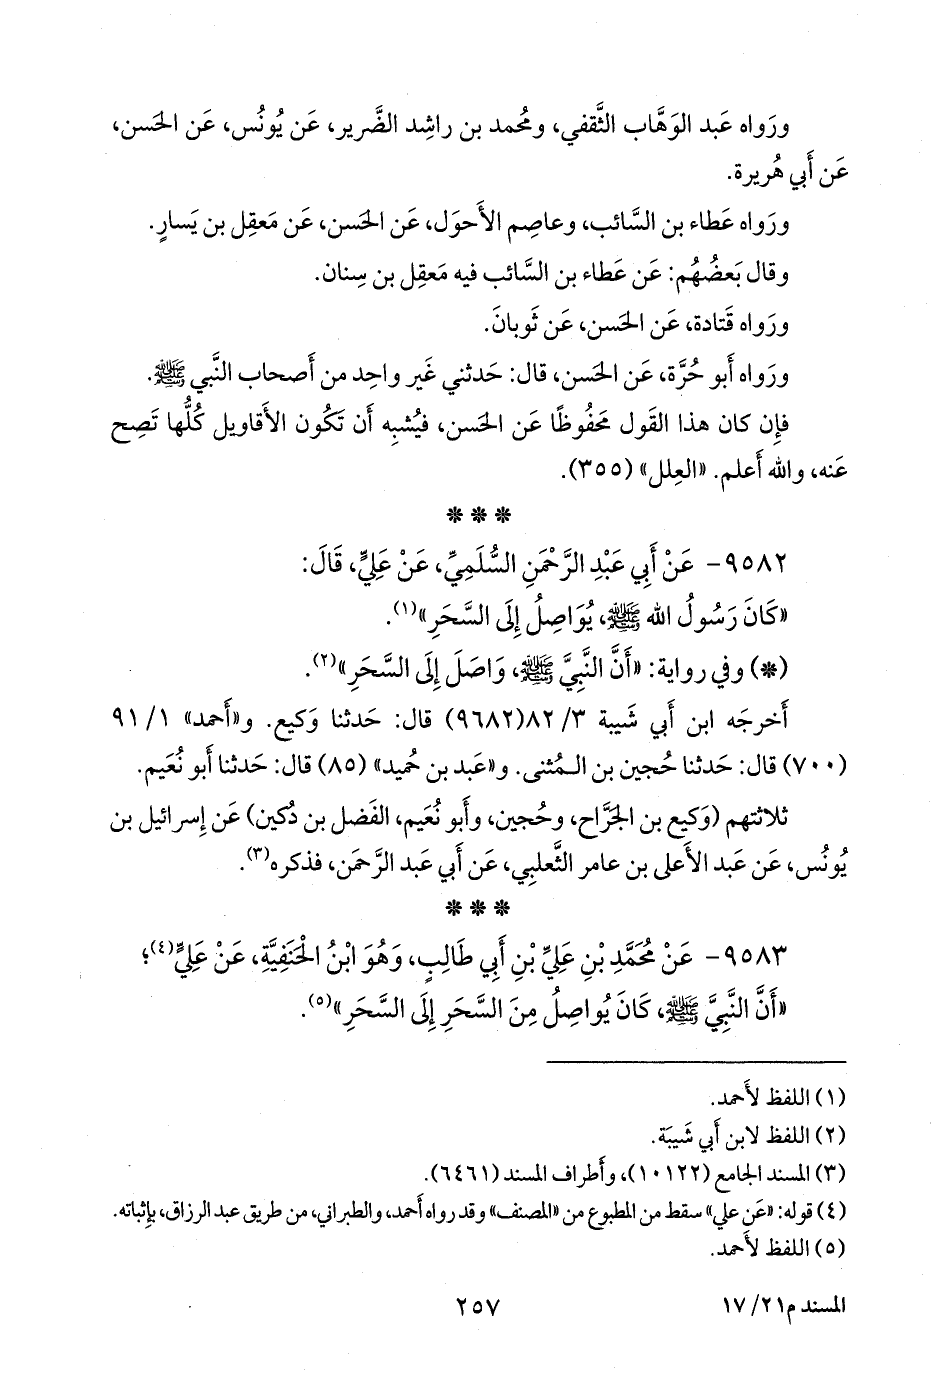 ورَواه عَبد الوَهَّاب الثَّقفي، ومُحمد بن راشِد الضَّرير، عَن يُونُس، عَن الحَسن،
عَن أَبي هُريرة.
ورَواه عَطاء بن السَّائب، وعاصِم الأَحوَل، عَن الحَسن، عَن مَعقِل بن يَسارٍ.
وقال بَعضُهُم: عَن عَطاء بن السَّائب فيه مَعقِل بن سِنان.
ورَواه قَتادة، عَن الحَسن، عَن ثَوبانَ.
ورَواه أَبو حُرَّة، عَن الحَسن، قال: حَدثني غَير واحِد من أَصحاب النَّبي ﷺ.
فإِن كان هذا القَول مَحفُوظًا عَن الحَسن، فيُشبِه أَن تَكُون الأَقاويل كُلُّها تَصِح
عَنه، والله أَعلم. «العِلل» (٣٥٥).
* * *
٩٥٨٢- عَنْ أَبِي عَبْدِ الرَّحْمَنِ السُّلَمِيِّ، عَنْ عَلِيٍّ، قَالَ:
«كَانَ رَسُولُ الله ﷺ، يُوَاصِلُ إِلَى السَّحَرِ»(١).
(*) وفي رواية: «أَنَّ النَّبِيَّ ﷺ، وَاصَلَ إِلَى السَّحَرِ»(٢).
أَخرجَه ابن أَبي شَيبة ٣/ ٨٢(٩٦٨٢) قال: حَدثنا وَكيع. و«أَحمد» ١/ ٩١
(٧٠٠) قال: حَدثنا حُجين بن الـمُثنى. و«عَبد بن حُميد» (٨٥) قال: حَدثنا أَبو نُعَيم.
ثلاثتهم (وَكيع بن الجَرَّاح، وحُجين، وأَبو نُعَيم، الفَضل بن دُكين) عَن إِسرائيل بن
يُونُس، عَن عَبد الأَعلى بن عامر الثَّعلبي، عَن أَبي عَبد الرَّحمَن، فذكره(٣).
* * *
٩٥٨٣- عَنْ مُحَمَّدِ بْنِ عَلِيِّ بْنِ أَبِي طَالِبٍ، وَهُوَ ابْنُ الْحَنَفِيَّةِ، عَنْ عَلِيٍّ(٤)؛
«أَنَّ النَّبِيَّ ﷺ، كَانَ يُواصِلُ مِنَ السَّحَرِ إِلَى السَّحَرِ»(٥).
(١) اللفظ لأَحمد.
(٢) اللفظ لابن أَبي شَيبَة.
(٣) المسند الجامع (١٠١٢٢)، وأَطراف المسند (٦٤٦١).
(٤) قوله: «عَن علي» سقط من المطبوع من «المصنف» وقد رواه أَحمد، والطبراني، من طريق عبد الرزاق، بإِثباته.
(٥) اللفظ لأَحمد.
المسند م٢١/ ١٧
٢٥٧